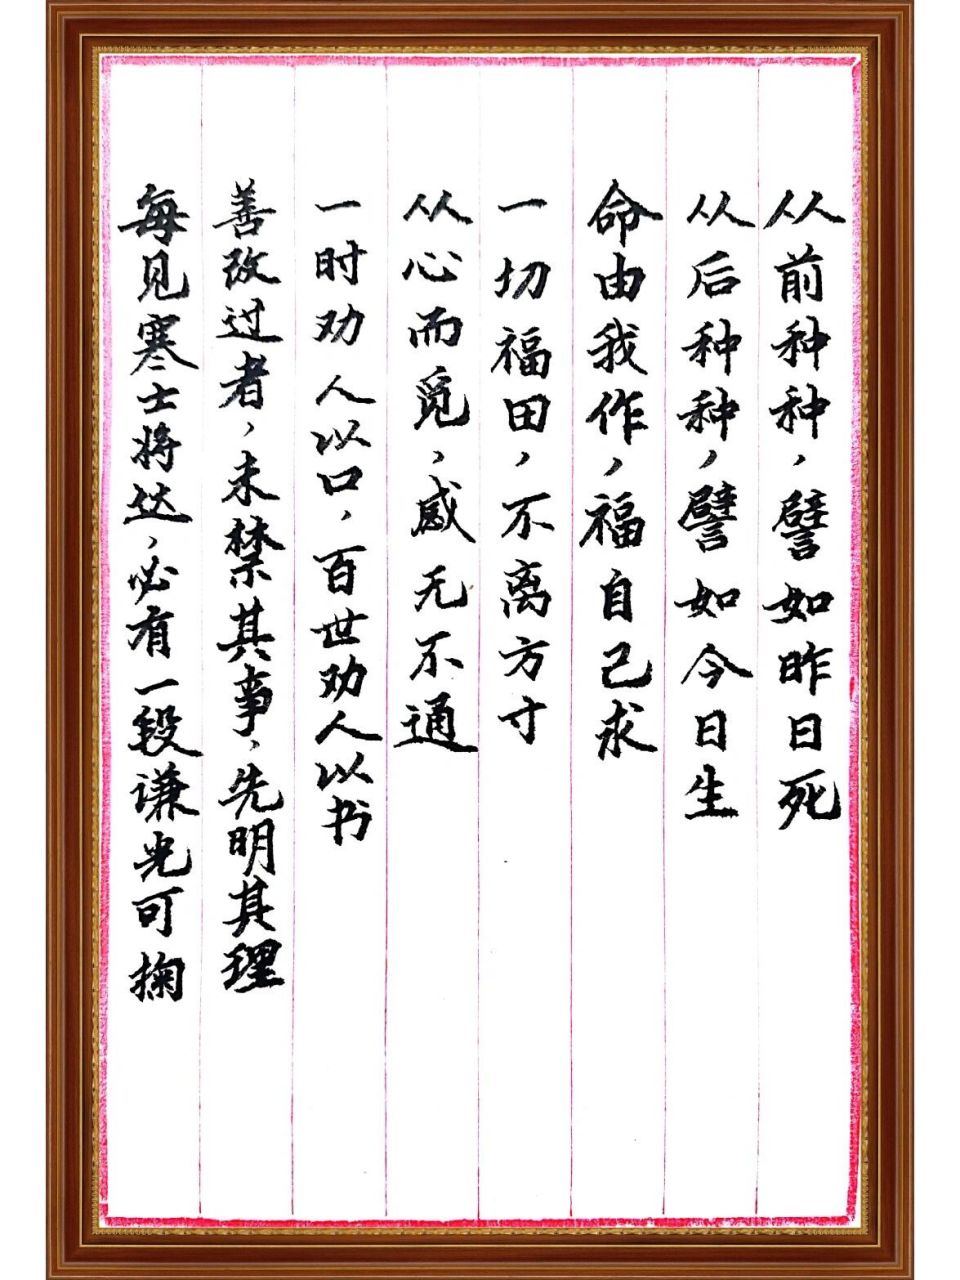 从前种种，譬如昨日死
从后种种，譬如今日生
命由我作，福自己求
一切福田，不离方寸
从心而觅，感无不通
一时劝人以口，百世劝人以书
善改过者，未禁其事，先明其理
每见寒士将达，必有一段谦光可掬